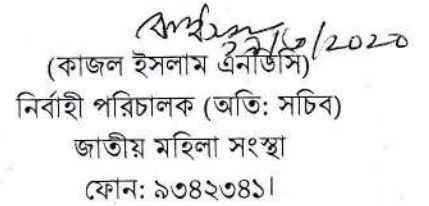 (কাজল ইসলাম এনডিসি)
নির্বাহী পরিচালক (অতি: সচিব)
জাতীয় মহিলা সংস্থা
ফোন: ৯৩৪২৩৪১।